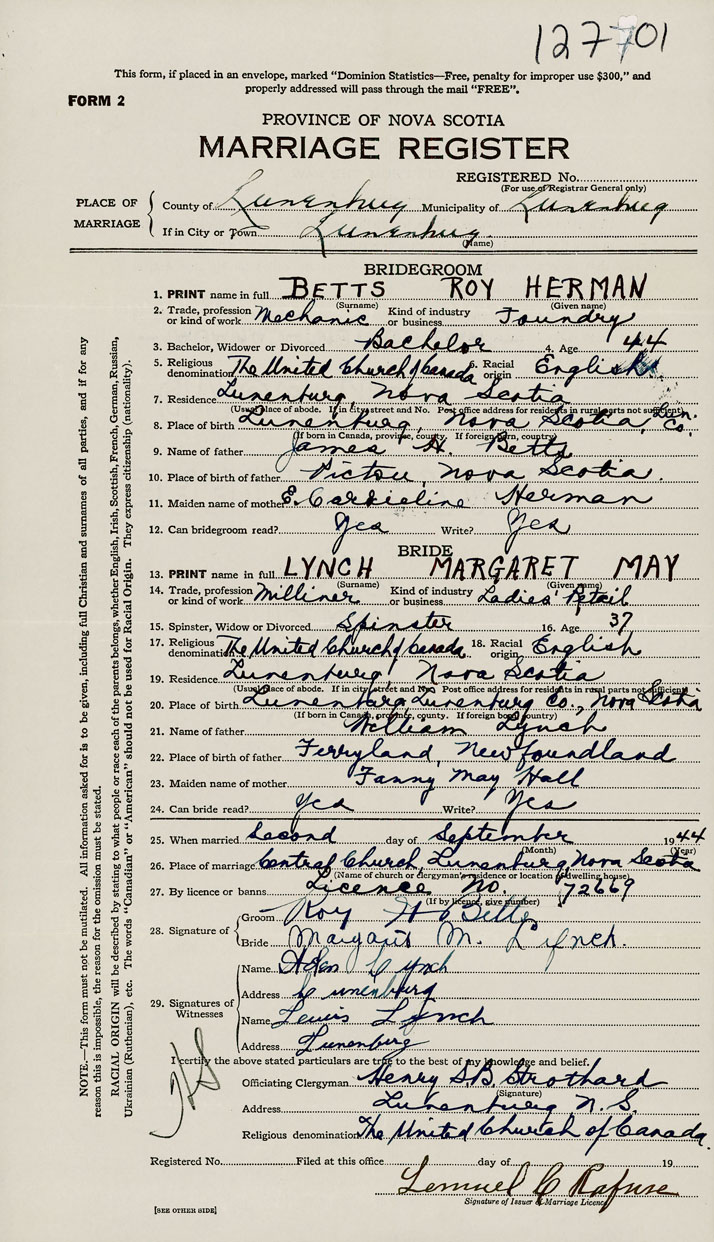 127701
This form, if placed in an envelope, marked "Dominion Statistics—Free, penalty for improper use $300," and
properly addressed will pass through the mail "FREE".
FORM 2
PROVINCE OF NOVA SCOTIA
MARRIAGE REGISTER
REGISTERED No.
(For use of Registrar General only)
PLACE OF MARRIAGE
County of Lunenburg Municipality of Lunenburg
If in City or Town Lunenburg
(Name)
BRIDEGROOM
1. PRINT name in full BETTS ROY HERMAN
(Surname) (Given name)
2. Trade, profession or kind of work Mechanic Kind of industry or business Foundry
3. Bachelor, Widower or Divorced Bachelor 4. Age 44
5. Religious denomination The United Church of Canada 6. Racial origin English
7. Residence Lunenburg, Nova Scotia
(Usual place of abode. If in city street and No. Post office address for residents in rural parts not sufficient)
8. Place of birth Lunenburg, Nova Scotia, Lun. Co.
(If born in Canada, province, county. If foreign born, country)
9. Name of father James H. Betts
10. Place of birth of father Pictou, Nova Scotia.
11. Maiden name of mother E. Herman
12. Can bridegroom read? Yes Write? Yes
BRIDE
13. PRINT name in full LYNCH MARGARET MAY
(Surname) (Given name)
14. Trade, profession or kind of work Milliner Kind of industry or business Ladies' Retail
15. Spinster, Widow or Divorced Spinster 16. Age 37
17. Religious denomination The United Church of Canada 18. Racial origin English
19. Residence Lunenburg, Nova Scotia
(Usual place of abode. If in city street and No. Post office address for residents in rural parts not sufficient)
20. Place of birth Lunenburg, Lunenburg Co., Nova Scotia
(If born in Canada, province, county. If foreign born, country)
21. Name of father William Lynch
22. Place of birth of father Ferryland, Newfoundland
23. Maiden name of mother Fanny May Hall
24. Can bride read? Yes Write? Yes
25. When married Second day of September 1944
(Month) (Year)
26. Place of marriage Central Church, Lunenburg, Nova Scotia
(Name of church or clergyman's residence or location of dwelling house)
27. By licence or banns Licence No. 72669
(If by licence, give number)
28. Signature of
Groom Roy H Betts
Bride Margaret M. Lynch.
29. Signatures of Witnesses
Name Lynch
Address Lunenburg
Name Lewis Lynch
Address Lunenburg
I certify the above stated particulars are true to the best of my knowledge and belief.
Officiating Clergyman Henry S.B. Strothard
(Signature)
Address Lunenburg N.S.
Religious denomination The United Church of Canada.
Registered No. Filed at this office day of 19
Lemuel C Rafuse
Signature of Issuer of Marriage Licence
[SEE OTHER SIDE]
NOTE.—This form must not be mutilated. All information asked for is to be given, including full Christian and surnames of all parties, and if for any
reason this is impossible, the reason for the omission must be stated.
RACIAL ORIGIN will be described by stating to what people or race each of the parents belongs, whether English, Irish, Scottish, French, German, Russian,
Ukrainian (Ruthenian), etc. The words "Canadian" or "American" should not be used for Racial Origin. They express citizenship (nationality).